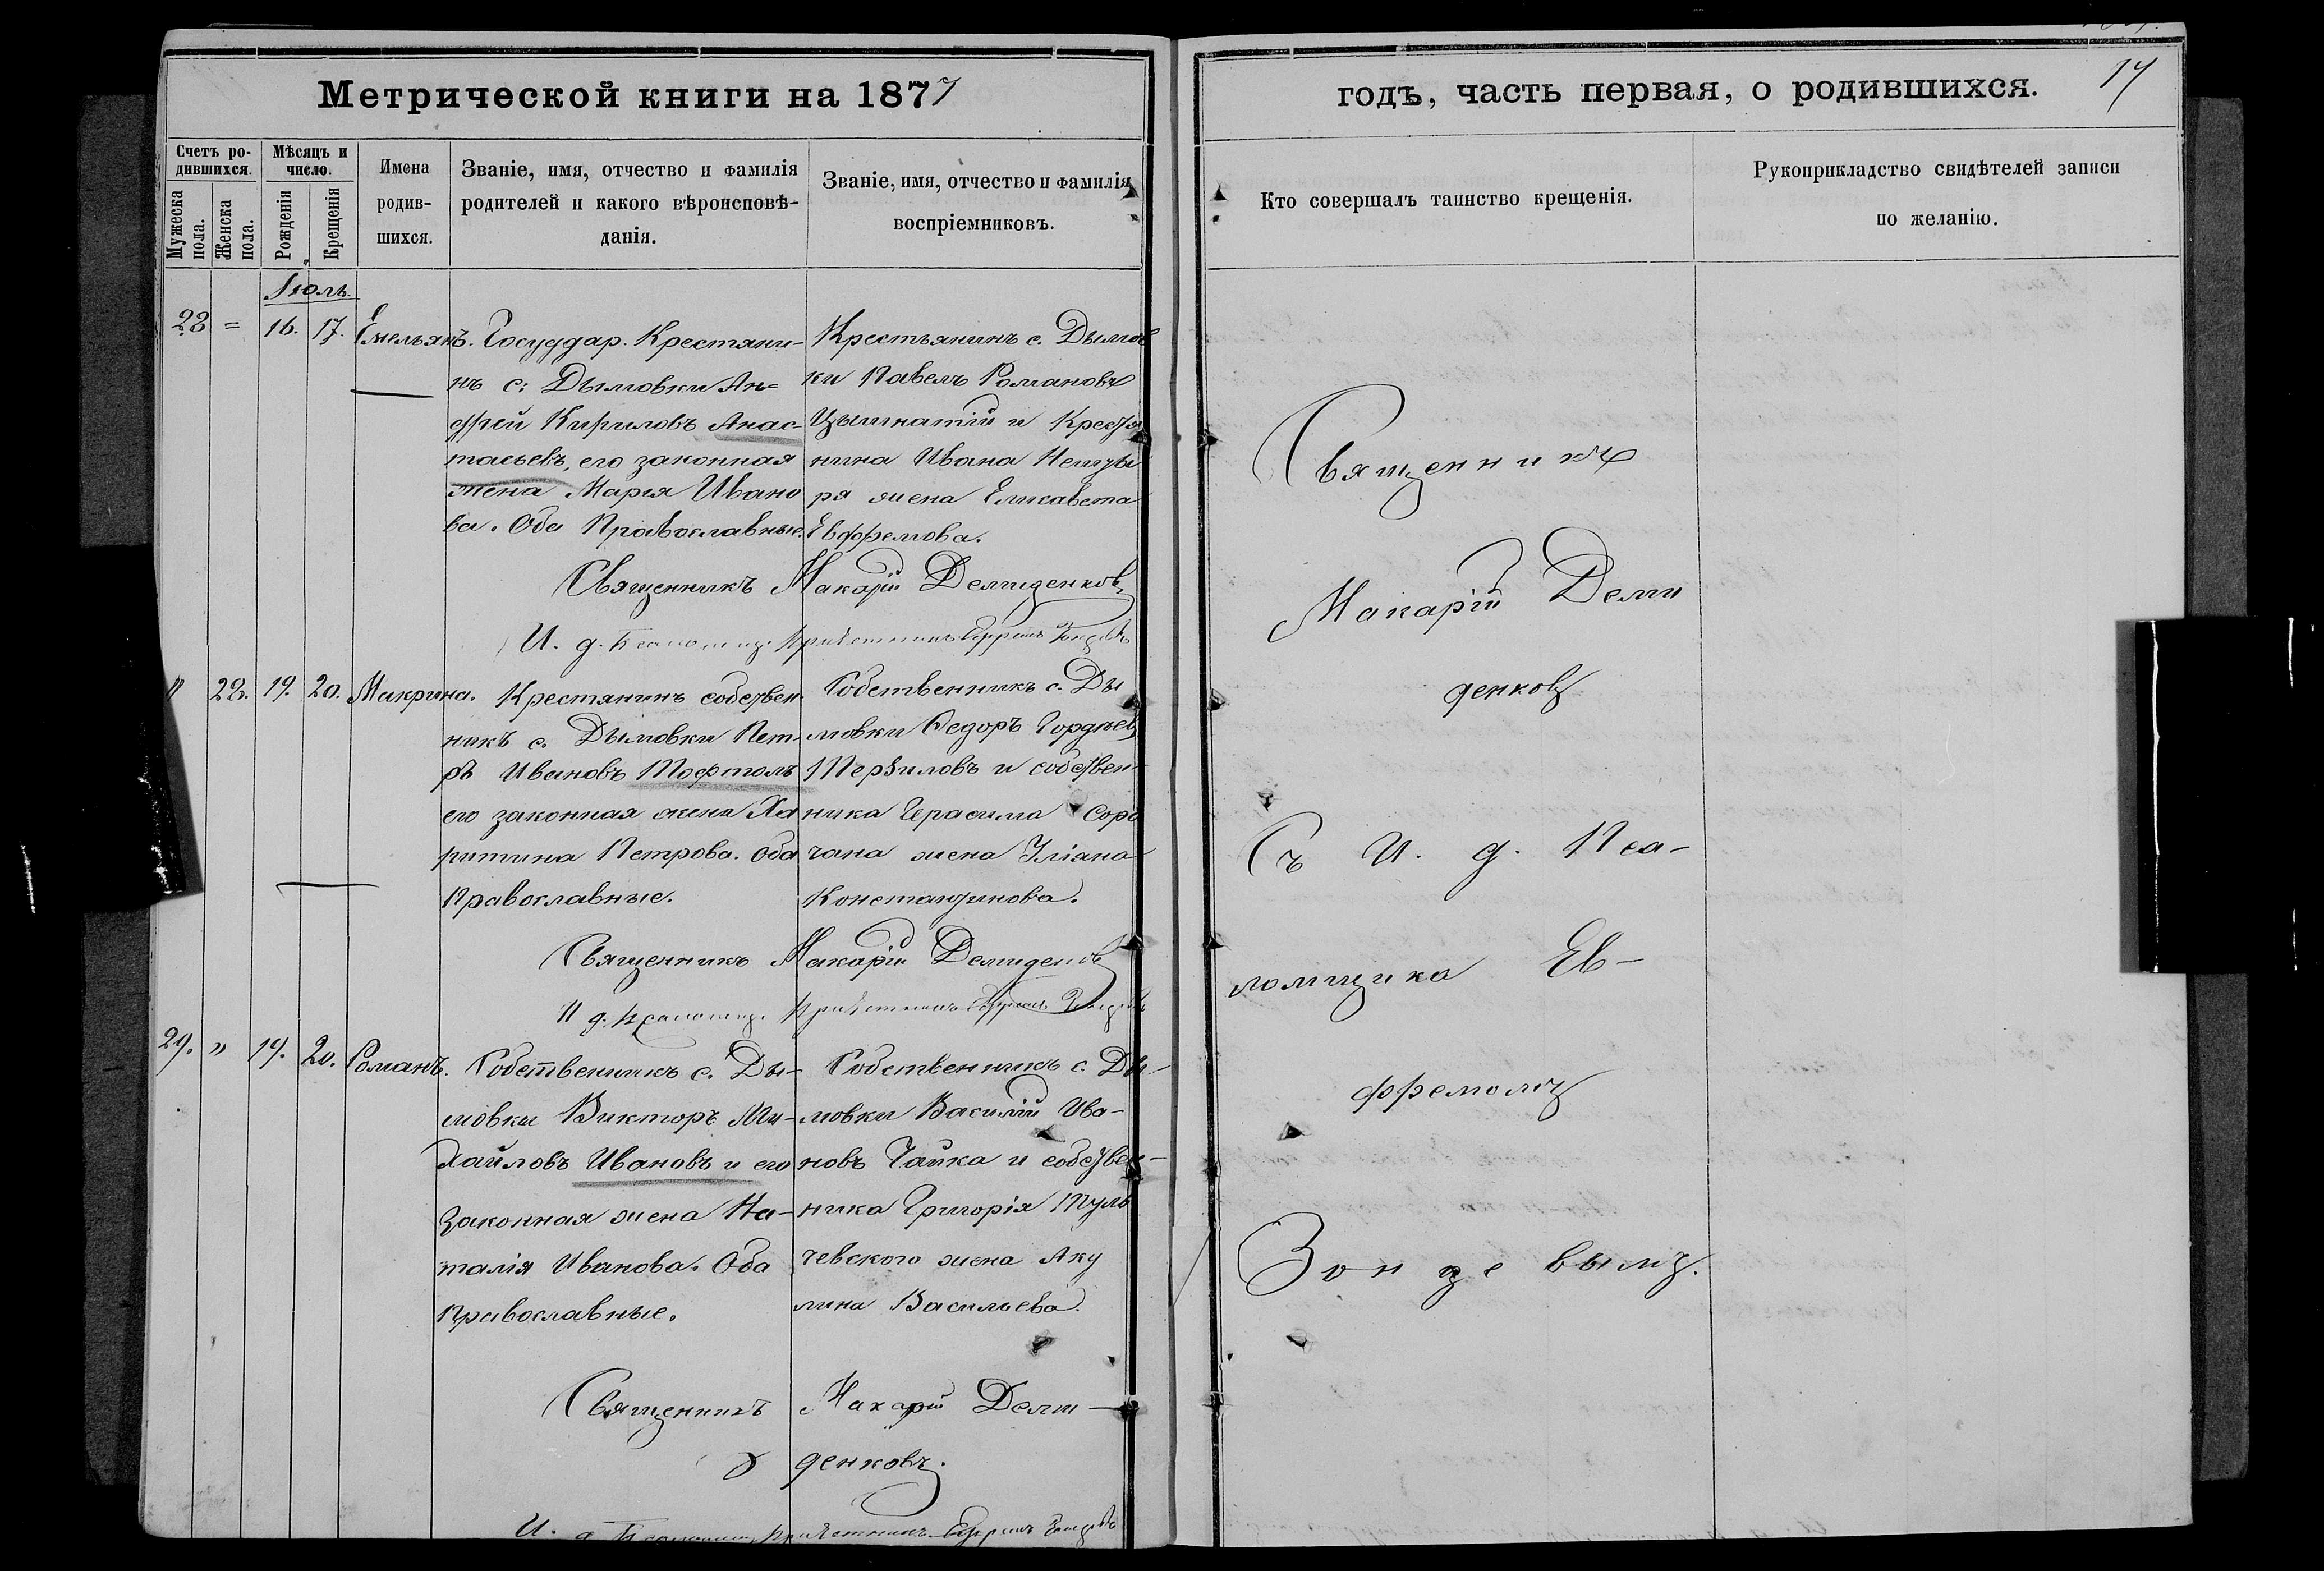 Метрической книги на 1877
годъ, часть первая, о родившихся.
17
Счетъ ро-
дившихся.
Мужеска пола.
Женска пола.
Мѣсяцъ и
число.
Рожденія
Крещенія
Имена
родив-
шихся.
Званіе, имя, отчество и фамилія
родителей и какого вѣроисповѣ-
данія.
Званіе, имя, отчество и фамилія
воспріемниковъ.
Кто совершалъ таинство крещенія.
Рукоприкладство свидѣтелей записи
по желанію.
Іюль.
28 = 16. 17. Емельянъ.
Госуддар. Крестяни-
нъ с: Дымовки Ан-
дрей Кириловъ Анас-
тасьевъ, его законная
жена Марія Ивано
ва. Оба Православные.
Крестьянинъ с. Дымов
ки Павелъ Романовъ
и Крестья
нина Ивана
ря жена Елисавета
Евфремова.
Священникъ Макарій Демиденковъ
И. д.
" 28. 19. 20. Макрина.
Крестянинъ собствен
никъ с. Дымовки Пет-
ръ Ивановъ Тофтолъ
его законная жена Ха
ритина Петрова. Оба
Православные.
Собственникъ с. Ды
мовки Федоръ Гордѣевъ
Терзиловъ и собствен
ника Герасима Соро
чана жена Уліана
Константинова.
Священникъ Макарій Демиденковъ
И д.
29. " 19. 20. Романъ.
Собственникъ с. Ды-
мовки Викторъ Ми-
хайловъ Ивановъ и его
законная жена На-
талія Иванова. Оба
Православные.
Собственникъ с. Ды-
мовки Василій Ива-
новъ Чайка и собствен-
ника Григорія Туль
чевского жена Аку
лина Васильева.
Священникъ Макарій Деми-
денковъ.
И. д.
Священникъ
Макарій Деми
денковъ
Съ И. д. Пса-
ломщика Ев-
фремомъ
Зонцевымъ.